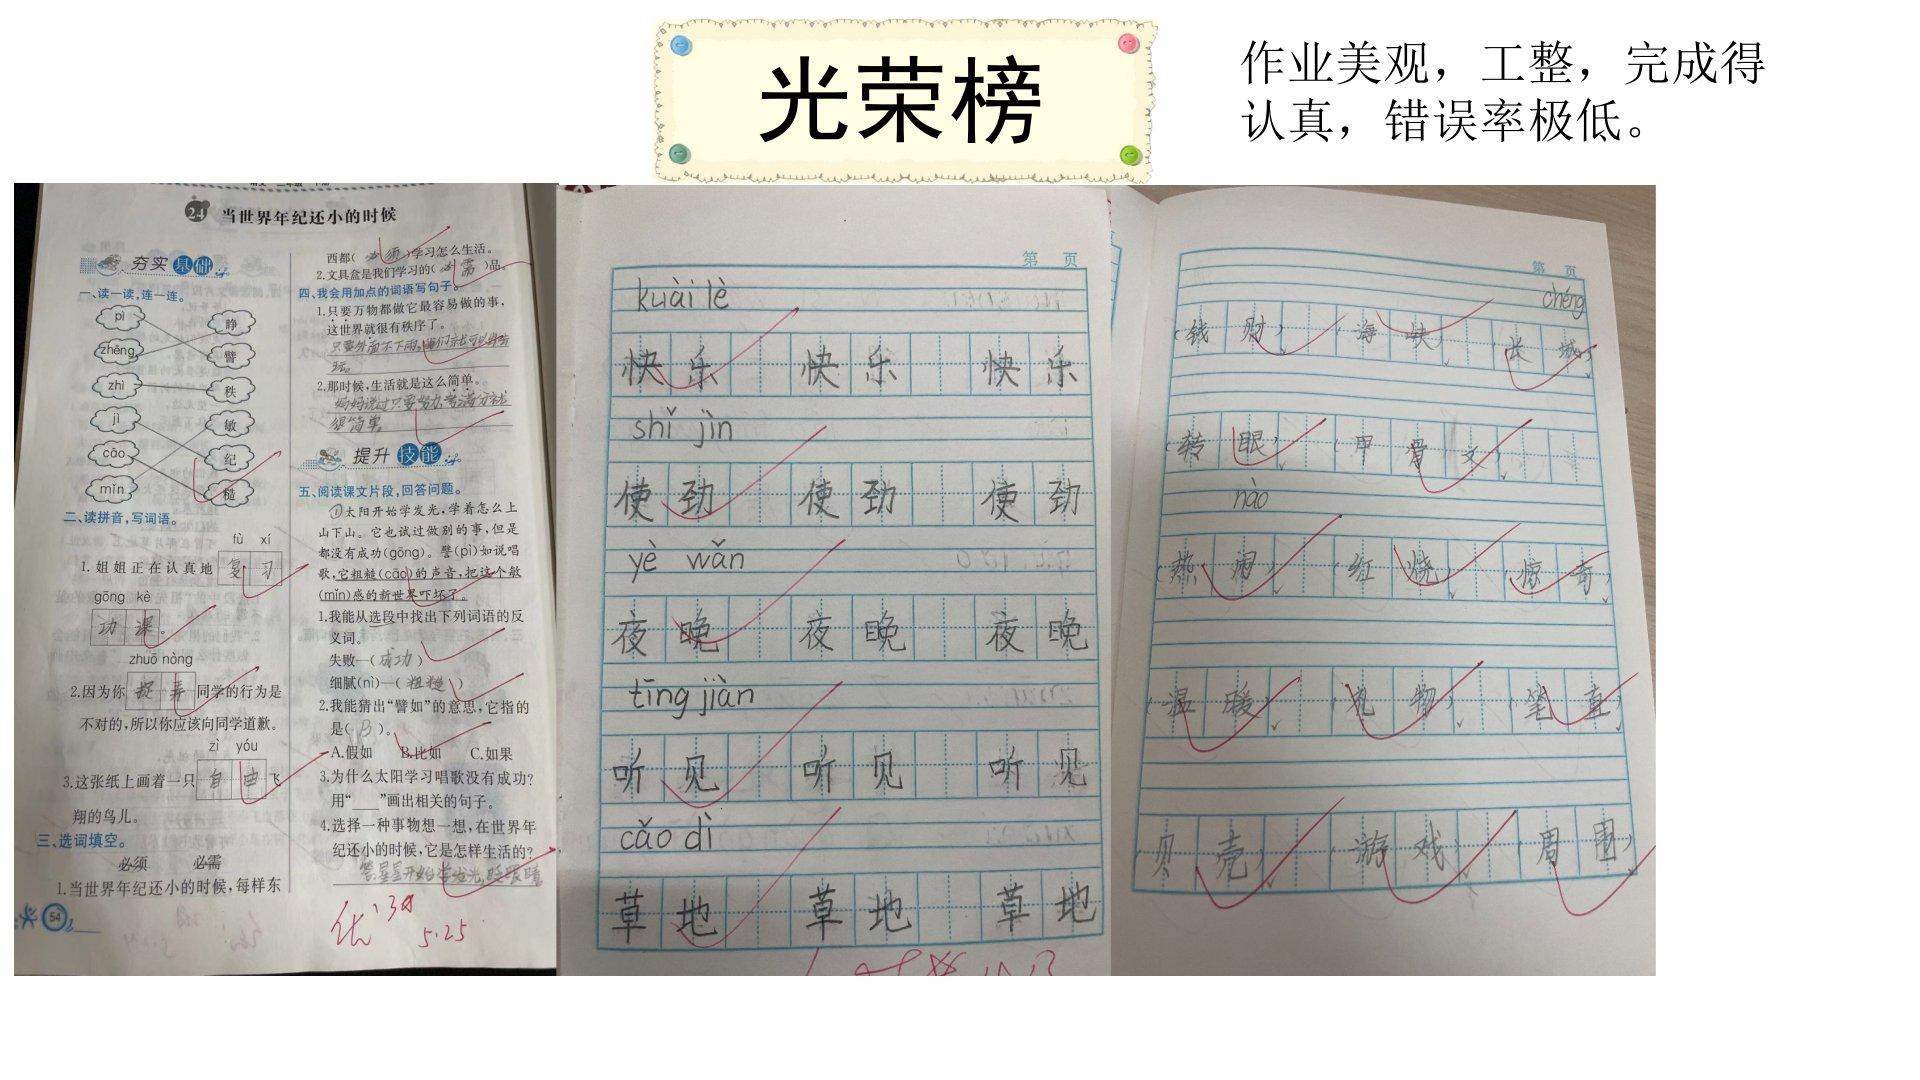 光荣榜
作业美观，工整，完成得
认真，错误率极低。
24 当世界年纪还小的时候
夯实基础
一、读一读，连一连。
pì 睁
zhēng 譬
zhì 秩
jì 敏
cāo 纪
mǐn 糙
二、读拼音，写词语。
fù xí
1.姐姐正在认真地 复习
gōng kè
功课。
zhuō nòng
2.因为你捉弄同学的行为是
不对的，所以你应该向同学道歉。
zì yóu
3.这张纸上画着一只自由飞
翔的鸟儿。
三、选词填空。
必须 必需
1.当世界年纪还小的时候，每样东
54
西都(必须)学习怎么生活。
2.文具盒是我们学习的(必需)品。
四、我会用加点的词语写句子。
1.只要万物都做它最容易做的事，
这世界就很有秩序了。
只要外面不下雨，我们就可以出去
玩。
2.那时候，生活就是这么简单。
妈妈说过只要努力，考满分就
很简单
提升技能
五、阅读课文片段，回答问题。
①太阳开始学发光，学着怎么上
山下山。它也试过做别的事，但是
都没有成功(gōng)。譬(pì)如说唱
歌，它粗糙(cāo)的声音，把这个敏
(mǐn)感的新世界吓坏了。
1.我能从选段中找出下列词语的反
义词。
失败—(成功)
细腻(nì)—(粗糙)
2.我能猜出“譬如”的意思，它指的
是(B)。
A.假如 B.比如 C.如果
3.为什么太阳学习唱歌没有成功？
用“___”画出相关的句子。
4.选择一种事物想一想，在世界年
纪还小的时候，它是怎样生活的？
答：星星开始学发光，眨眼睛
优
5.25
第 页
kuài lè
快乐 快乐 快乐
shǐ jìn
使劲 使劲 使劲
yè wǎn
夜晚 夜晚 夜晚
tīng jiàn
听见 听见 听见
cǎo dì
草地 草地 草地
第 页
chéng
(钱财) (海峡) (长城)
(转眼) (甲骨文)
nào
(热闹) (红烧) (惊奇)
(温暖) (礼物) (笔直)
(贝壳) (游戏) (周围)